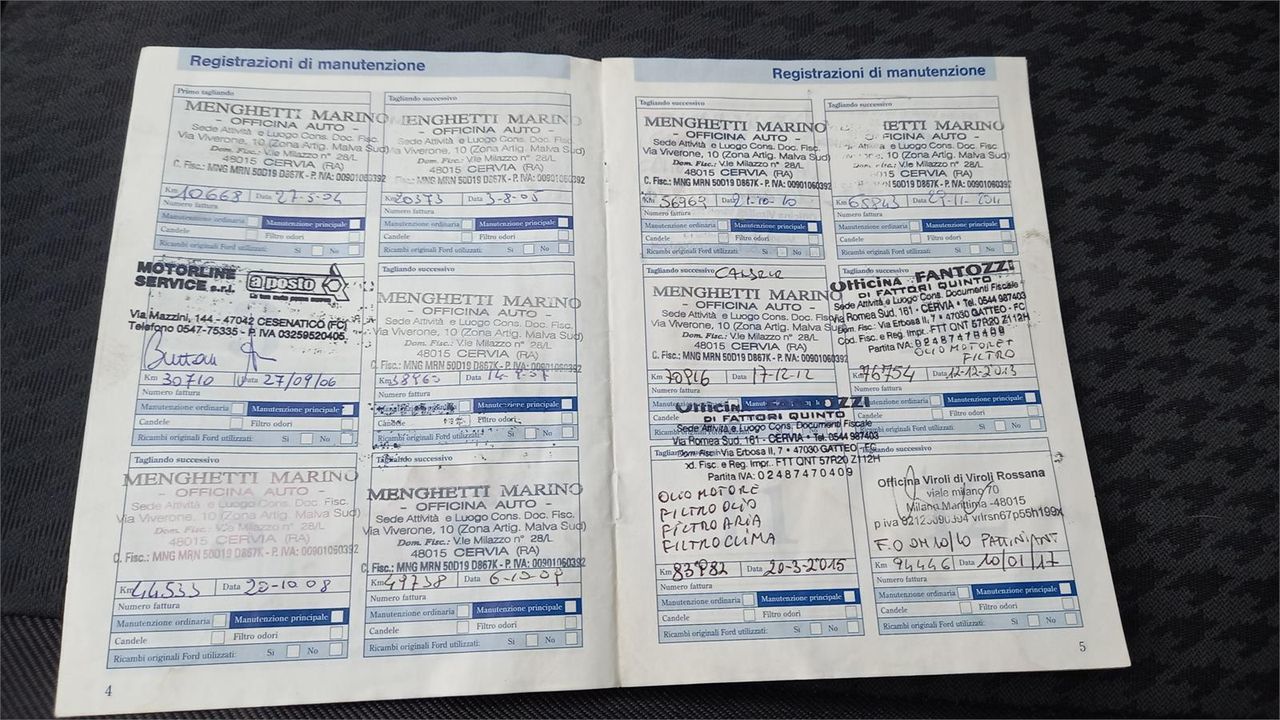 Registrazioni di manutenzione
Primo tagliando
MENGHETTI MARINO
- OFFICINA AUTO -
Sede Attività e Luogo Cons. Doc. Fisc.
Via Viverone, 10 (Zona Artig. Malva Sud)
Dom. Fisc.: V.le Milazzo n° 28/L
48015 CERVIA (RA)
C. Fisc.: MNG MRN 50D19 D867K - P. IVA: 00901060392
Km 10668 Data 27-5-04
Numero fattura
Manutenzione ordinaria Manutenzione principale
Candele Filtro odori
Ricambi originali Ford utilizzati: Si No
Tagliando successivo
MENGHETTI MARINO
- OFFICINA AUTO -
Sede Attività e Luogo Cons. Doc. Fisc.
Via Viverone, 10 (Zona Artig. Malva Sud)
Dom. Fisc.: V.le Milazzo n° 28/L
48015 CERVIA (RA)
MNG MRN 50D19 D867K - P. IVA: 00901060392
Km 20373 Data 3-8-05
Numero fattura
Manutenzione ordinaria Manutenzione principale
Candele Filtro odori
Ricambi originali Ford utilizzati: Si No
MOTORLINE
SERVICE s.r.l.
a posto
Via Mazzini, 144 - 47042 CESENATICO (FC)
Telefono 0547-75335 - P. IVA 03259520405
Km 30710 Data 27/09/06
Numero fattura
Manutenzione ordinaria Manutenzione principale
Candele Filtro odori
Ricambi originali Ford utilizzati: Si No
Tagliando successivo
MENGHETTI MARINO
- OFFICINA AUTO -
Sede Attività e Luogo Cons. Doc. Fisc.
Via Viverone, 10 (Zona Artig. Malva Sud)
Dom. Fisc.: V.le Milazzo n° 28/L
48015 CERVIA (RA)
C. Fisc.: MNG MRN 50D19 D867K - P. IVA: 00901060392
Km Data
Numero fattura
Manutenzione ordinaria Manutenzione principale
Candele Filtro odori
Ricambi originali Ford utilizzati: Si No
Tagliando successivo
MENGHETTI MARINO
- OFFICINA AUTO -
Sede Attività e Luogo Cons. Doc. Fisc.
Via Viverone, 10 (Zona Artig. Malva Sud)
Dom. Fisc.: V.le Milazzo n° 28/L
48015 CERVIA (RA)
C. Fisc.: MNG MRN 50D19 D867K - P. IVA: 00901060392
Km 44533 Data 20-10-08
Numero fattura
Manutenzione ordinaria Manutenzione principale
Candele Filtro odori
Ricambi originali Ford utilizzati: Si No
MENGHETTI MARINO
- OFFICINA AUTO -
Sede Attività e Luogo Cons. Doc. Fisc.
Via Viverone, 10 (Zona Artig. Malva Sud)
Dom. Fisc.: V.le Milazzo n° 28/L
48015 CERVIA (RA)
C. Fisc.: MNG MRN 50D19 D867K - P. IVA: 00901060392
Km 49738 Data 6-10-09
Numero fattura
Manutenzione ordinaria Manutenzione principale
Candele Filtro odori
Ricambi originali Ford utilizzati: Si No
4
Registrazioni di manutenzione
Tagliando successivo
MENGHETTI MARINO
- OFFICINA AUTO -
Sede Attività e Luogo Cons. Doc. Fisc.
Via Viverone, 10 (Zona Artig. Malva Sud)
Dom. Fisc.: V.le Milazzo n° 28/L
48015 CERVIA (RA)
C. Fisc.: MNG MRN 50D19 D867K - P. IVA: 00901060392
Km 56969 Data 21-10-10
Numero fattura
Manutenzione ordinaria Manutenzione principale
Candele Filtro odori
Ricambi originali Ford utilizzati: Si No
Tagliando successivo
MARINO
- OFFICINA AUTO -
e Luogo Cons. Doc. Fisc.
10 (Zona Artig. Malva Sud)
V.le Milazzo n° 28/L
48015 CERVIA (RA)
MNG MRN 50D19 D867K - P. IVA: 00901060392
Km 65843 Data
Numero fattura
Manutenzione ordinaria Manutenzione principale
Candele Filtro odori
Ricambi originali Ford utilizzati: Si No
Tagliando successivo
MENGHETTI MARINO
- OFFICINA AUTO -
Sede Attività e Luogo Cons. Doc. Fisc.
Via Viverone, 10 (Zona Artig. Malva Sud)
Dom. Fisc.: V.le Milazzo n° 28/L
48015 CERVIA (RA)
C. Fisc.: MNG MRN 50D19 D867K - P. IVA: 00901060392
Km 70916 Data 17-12-12
Numero fattura
Manutenzione ordinaria
Tagliando successivo
Officina FANTOZZI
DI FATTORI QUINTO
Sede Attività e Luogo Cons. Documenti Fiscale
Via Romea Sud, 161 - CERVIA • Tel. 0544 987403
Dom. Fisc.: Via Erbosa II, 7 • 47030 GATTEO - FC
Cod. Fisc. e Reg. Impr. FTT QNT 57R20 Z112H
Partita IVA: 02487470409
OLIO MOTORE+
FILTRO
Km 76754 Data 12-12-2013
Numero fattura
Manutenzione ordinaria Manutenzione principale
Candele Filtro odori
Ricambi originali Ford utilizzati: Si No
Officina FANTOZZI
DI FATTORI QUINTO
Sede Attività e Luogo Cons. Documenti Fiscale
Via Romea Sud, 161 - CERVIA • Tel. 0544 987403
Dom. Fisc.: Via Erbosa II, 7 • 47030 GATTEO - FC
Fisc. e Reg. Impr. FTT QNT 57R20 Z112H
Partita IVA: 02487470409
OLIO MOTORE
FILTRO OLIO
FILTRO ARIA
FILTRO CLIMA
Km 83982 Data 20-3-2015
Numero fattura
Manutenzione ordinaria Manutenzione principale
Candele Filtro odori
Ricambi originali Ford utilizzati: Si No
Officina Viroli di Viroli Rossana
viale milano 70
Milano Marittima - 48015
Km 94446 Data 10/01/17
Numero fattura
Manutenzione ordinaria Manutenzione principale
Candele Filtro odori
Ricambi originali Ford utilizzati: Si No
5